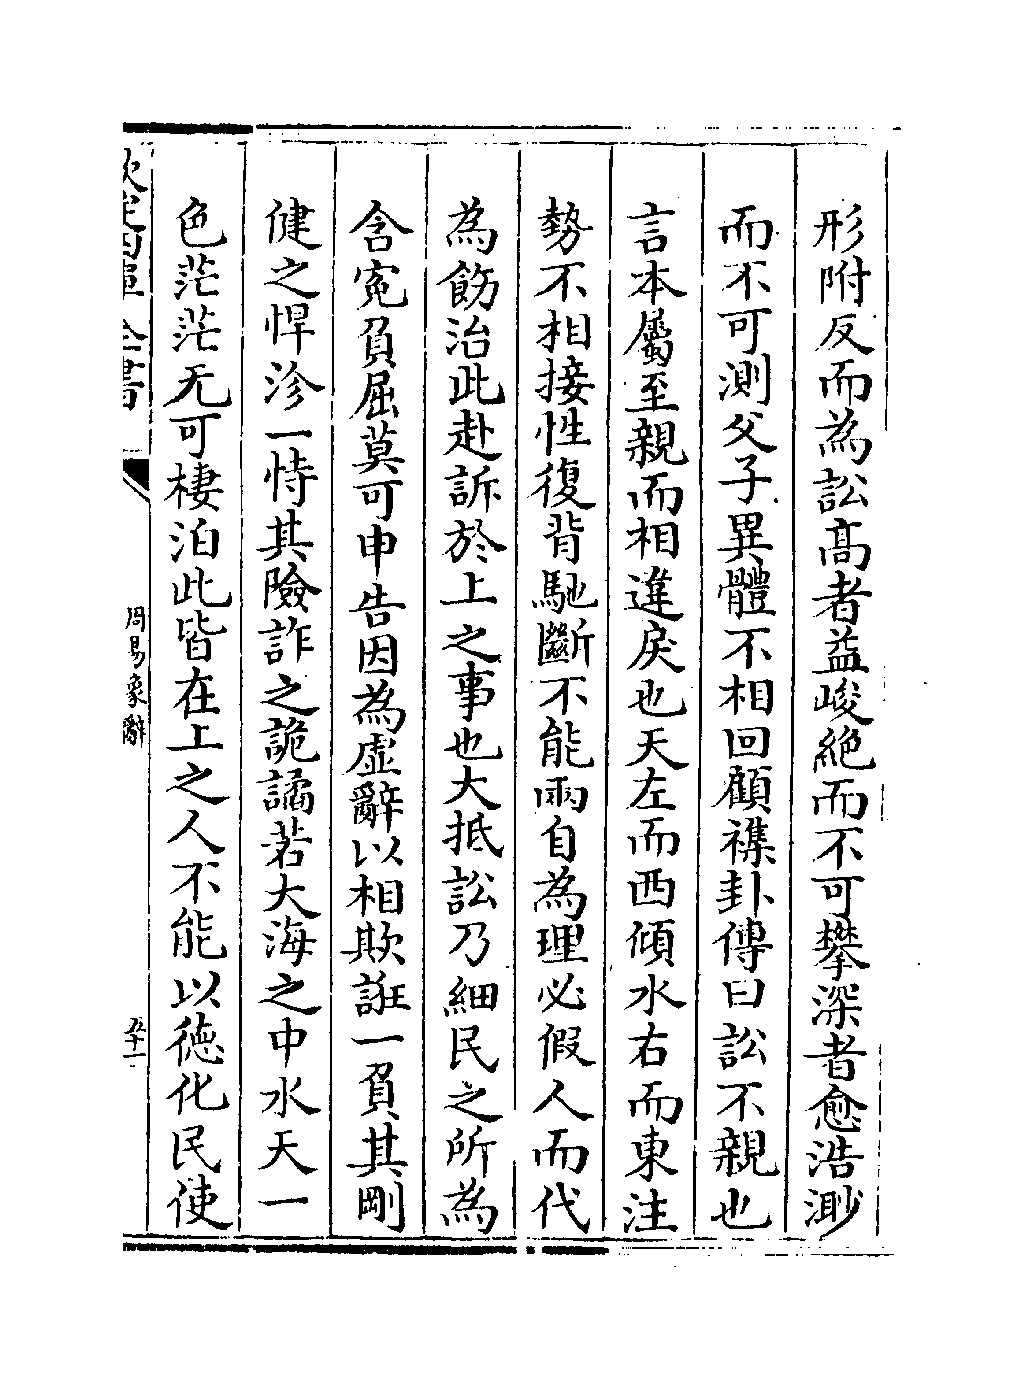 形附反而為訟高者益峻絶而不可攀深者愈浩渺
而不可測父子異體不相回顧襍卦傳曰訟不親也
言本屬至親而相違戾也天左而西傾水右而東注
勢不相接性復背馳斷不能兩自為理必假人而代
為飭治此赴訴於上之事也大抵訟乃細民之所為
含寃負屈莫可申告因為虛辭以相欺誑一負其剛
健之悍沴一恃其險詐之詭譎若大海之中水天一
色茫茫无可棲泊此皆在上之人不能以徳化民使
欽定四庫全書
周易象辭